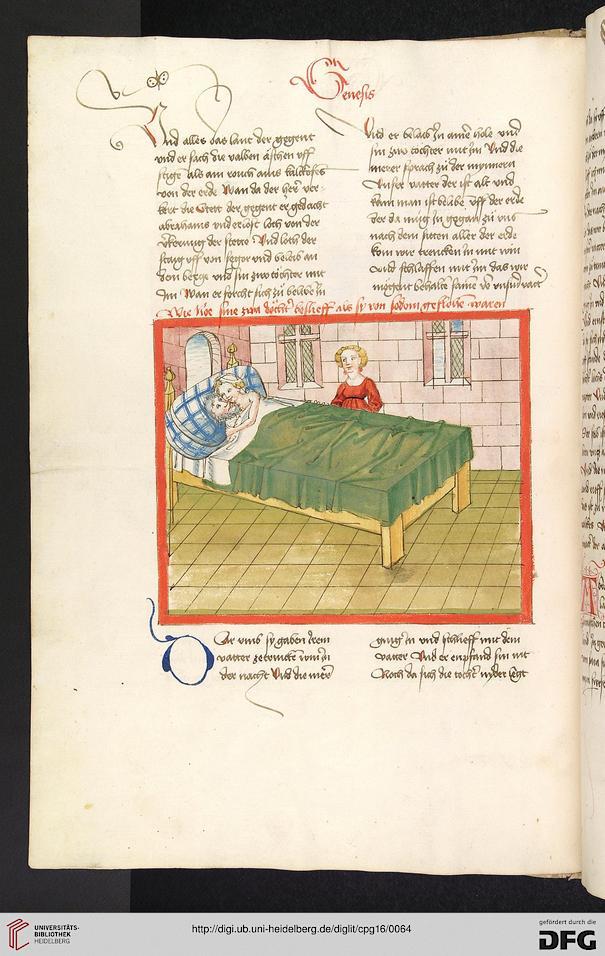 Genesis
Vnd alles das lant der gegent
vnd er sach die valben äschen vff
stige als ain rouch ains kalckofes
von der erde Wan da der her ver
kert die Stett der gegent er gedacht
abrahams vnd erlost loth von der
vkerung der stette Vnd loth der
staig vff von segor vnd belaib an
dem berge vnd sin zwo tochter mit
Im Wan er forcht sich zu belibe in
Vnd er belaib in ainer hole vnd
sin zwo tochter mit im Vnd die
merer sprach zu der mynnern
Vnser vatter der ist alt vnd
kain man ist belibe vff der erde
der da mug in gegan zu vns
nach dem sitten aller der erde
kom wir trencken in mit win
vnd schlaffen mit im das wir
mogent behalte same vo vnserm vatter
Wie sine zwa dochter beslieff als sy von sodom geflohen waren
Dar vmb sy gaben irem
vatter ze trincke win in
der nacht Vnd die mere
gieng in vnd schlieff mit dem
vatter Vnd er enpfand sin nit
Noch da sich die tochter nyder legt
UNIVERSITÄTS-
BIBLIOTHEK
HEIDELBERG
http://digi.ub.uni-heidelberg.de/diglit/cpg16/0064
gefördert durch die
DFG